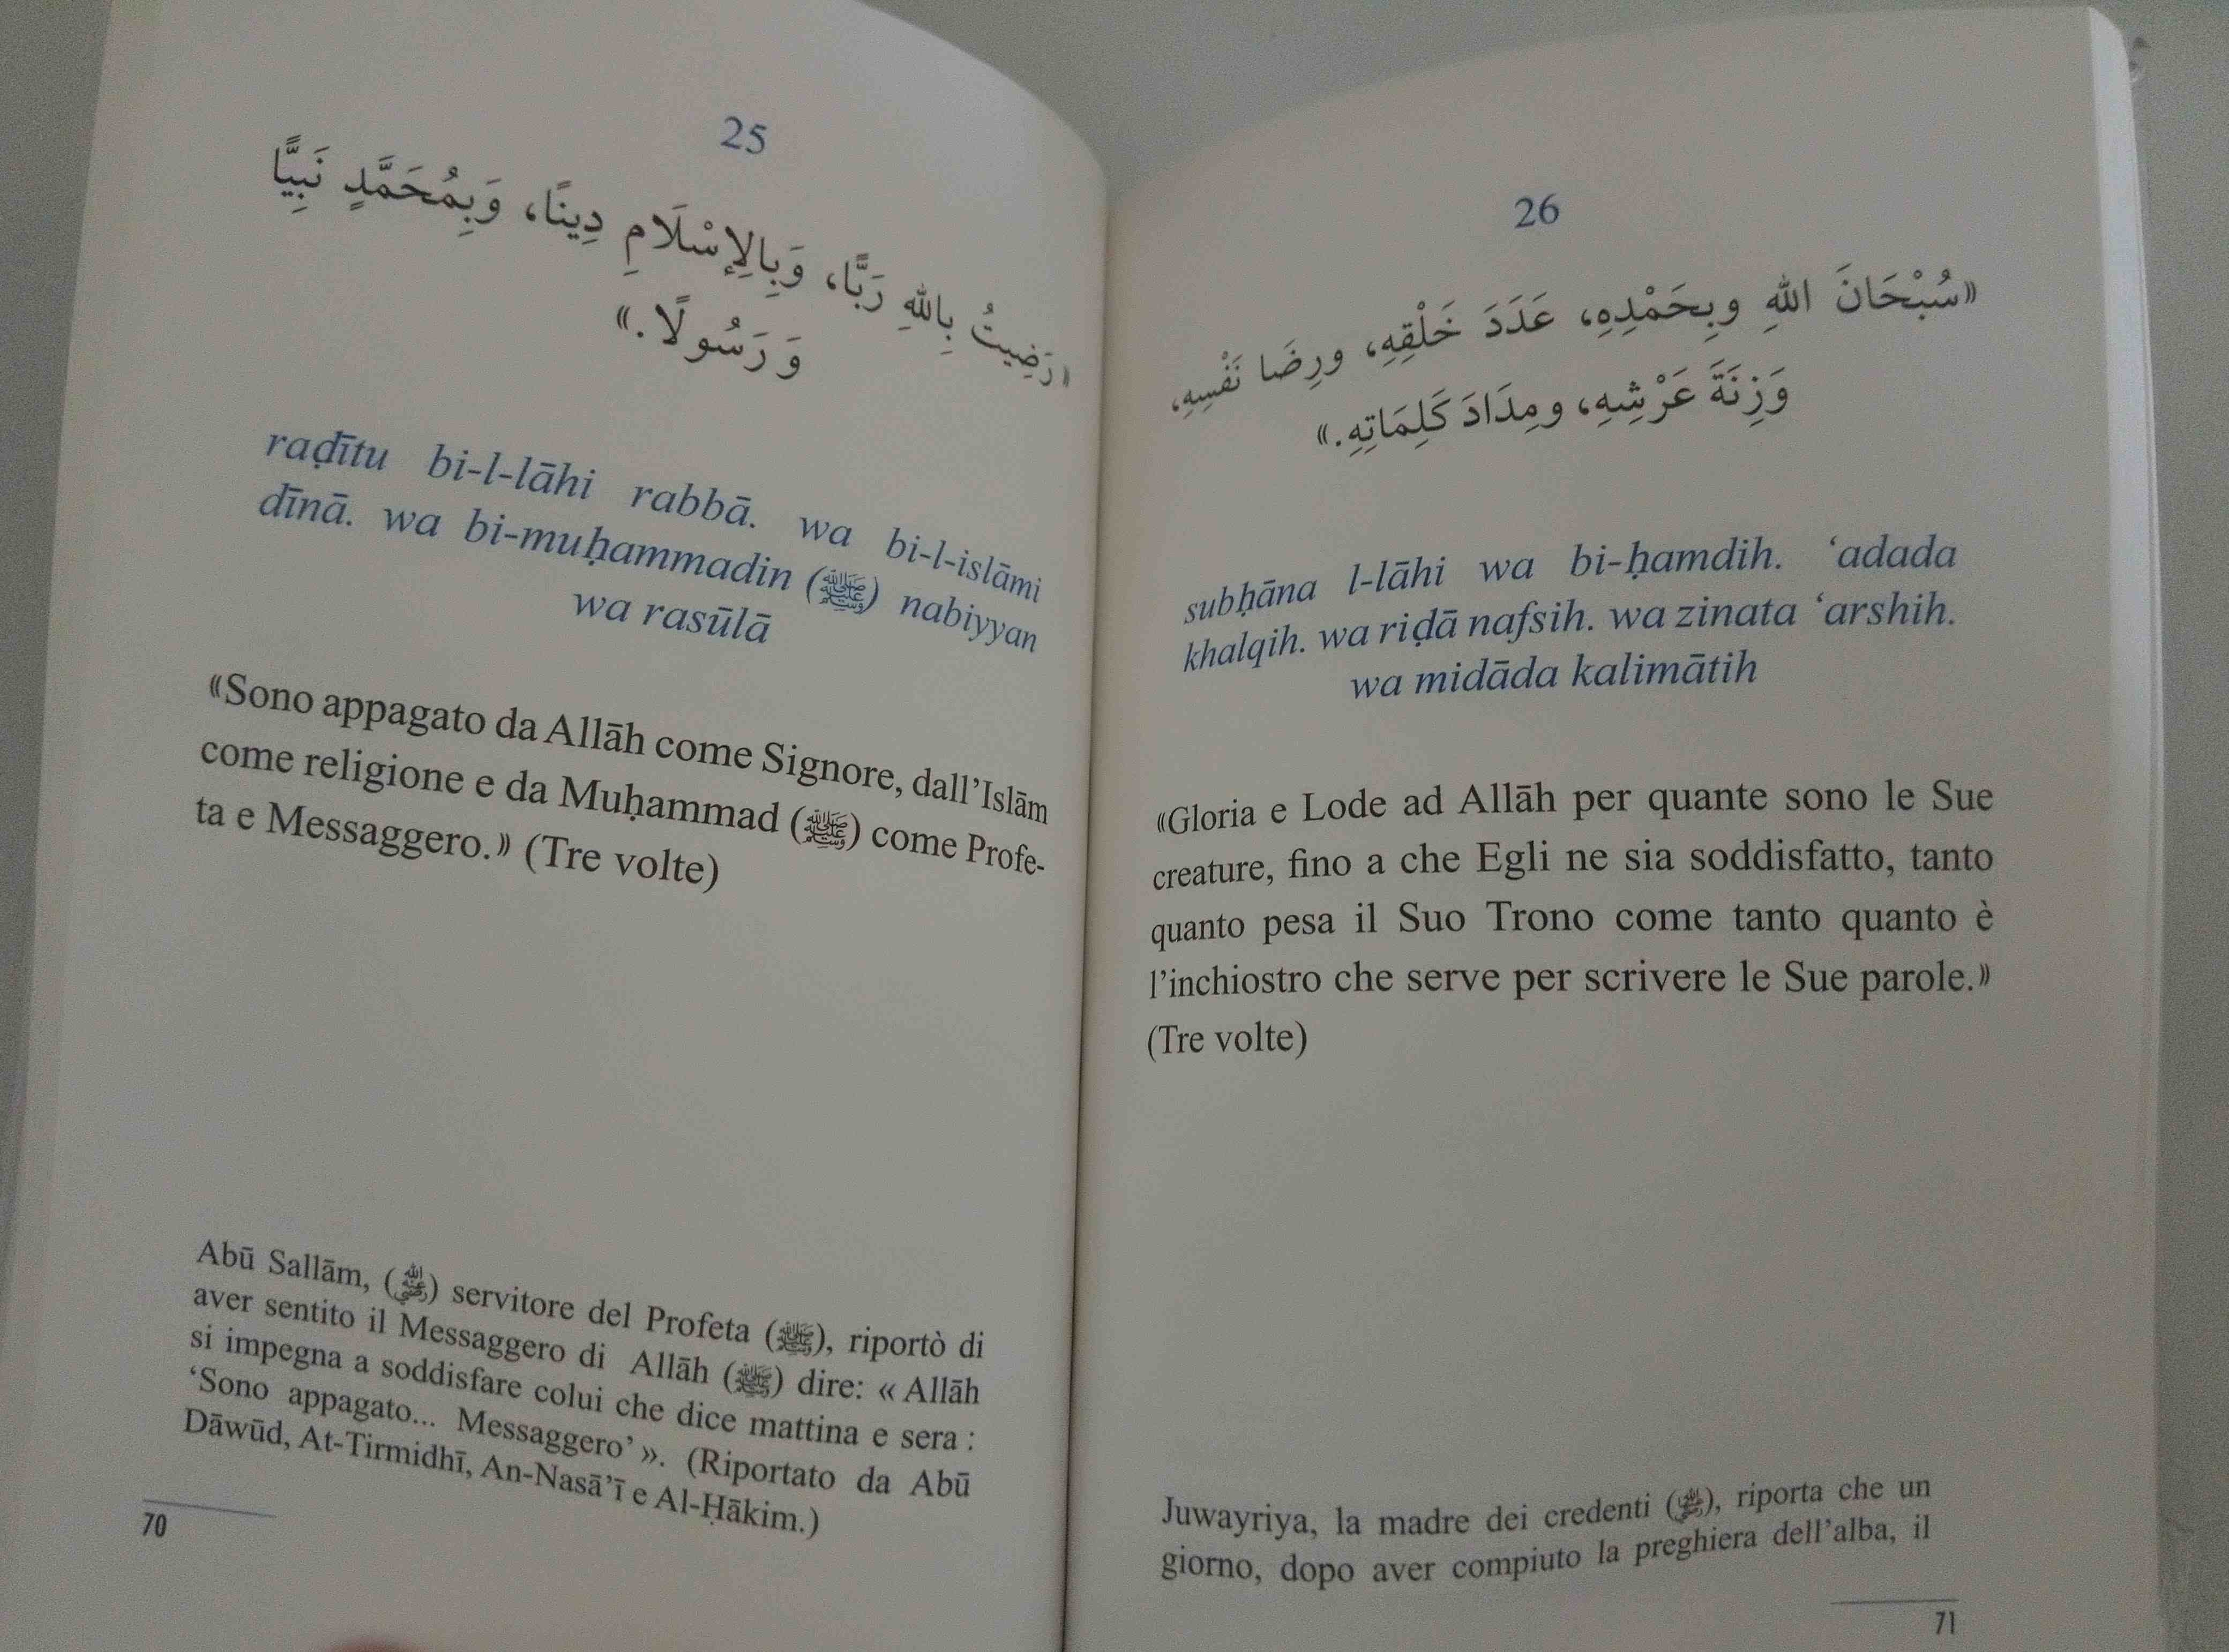 25
«رَضِيتُ بِاللهِ رَبًّا، وَبِالْإِسْلَامِ دِينًا، وَبِمُحَمَّدٍ نَبِيًّا
وَرَسُولًا.»
raḍītu bi-l-lāhi rabbā. wa bi-l-islāmi
dīnā. wa bi-muḥammadin (ﷺ) nabiyyan
wa rasūlā
«Sono appagato da Allāh come Signore, dall’Islām
come religione e da Muḥammad (ﷺ) come Profe-
ta e Messaggero.» (Tre volte)
Abū Sallām, (رضي الله عنه) servitore del Profeta (ﷺ), riportò di
aver sentito il Messaggero di Allāh (ﷺ) dire: « Allāh
si impegna a soddisfare colui che dice mattina e sera :
‘Sono appagato... Messaggero’ ». (Riportato da Abū
Dāwūd, At-Tirmidhī, An-Nasā’ī e Al-Ḥākim.)
70
26
«سُبْحَانَ اللهِ وبِحَمْدِهِ، عَدَدَ خَلْقِهِ، ورِضَا نَفْسِهِ،
وَزِنَةَ عَرْشِهِ، ومِدَادَ كَلِمَاتِهِ.»
subḥāna l-lāhi wa bi-ḥamdih. ‘adada
khalqih. wa riḍā nafsih. wa zinata ‘arshih.
wa midāda kalimātih
«Gloria e Lode ad Allāh per quante sono le Sue
creature, fino a che Egli ne sia soddisfatto, tanto
quanto pesa il Suo Trono come tanto quanto è
l’inchiostro che serve per scrivere le Sue parole.»
(Tre volte)
Juwayriya, la madre dei credenti (), riporta che un
giorno, dopo aver compiuto la preghiera dell’alba, il
71